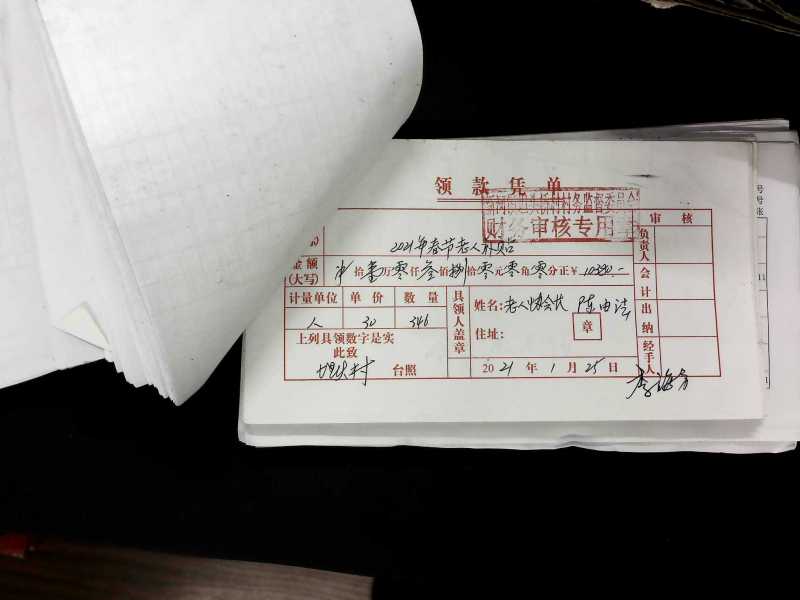 领款凭单
村务监督委员会
财务审核专用章
审核
2021年春节老人补贴
金额
(大写)
拾壹万零仟叁佰捌拾零元零角零分正￥10380.—
计量单位 单价 数量
人 30 346
上列具领数字是实
此致
村 台照
具领人盖章
姓名:老人协会长 陈由法
住址:
章
2021年1月25日
负责人
会计
出纳
经手人
号
号
张
11